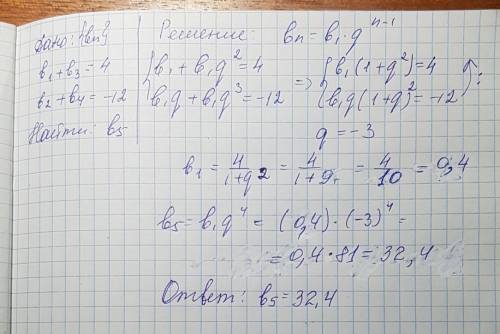 Дано: {bn}
b₁+b₃=4
b₂+b₄=-12
Найти: b₅
Решение: bn=b₁·q^(n-1)
{b₁+b₁q²=4 => {b₁(1+q²)=4
{b₁q+b₁q³=-12 {b₁q(1+q)²=-12 ↑:
q=-3
b₁=4/(1+q2)=4/(1+9)=4/10=0,4
b₅=b₁q⁴=(0,4)·(-3)⁴=
=0,4*81=32,4
Ответ: b₅=32,4